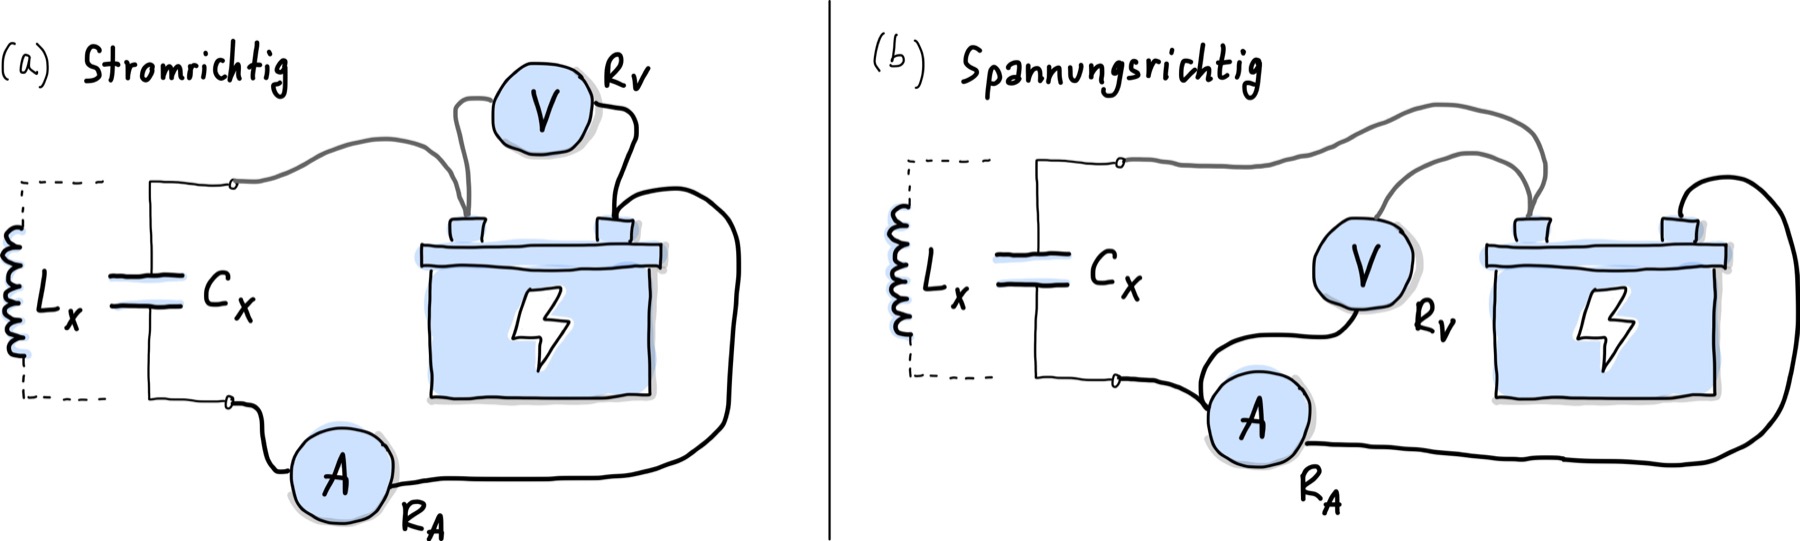 (a) Stromrichtig
V
Rv
Lx
Cx
A
RA
(b) Spannungsrichtig
Lx
Cx
V
Rv
A
RA